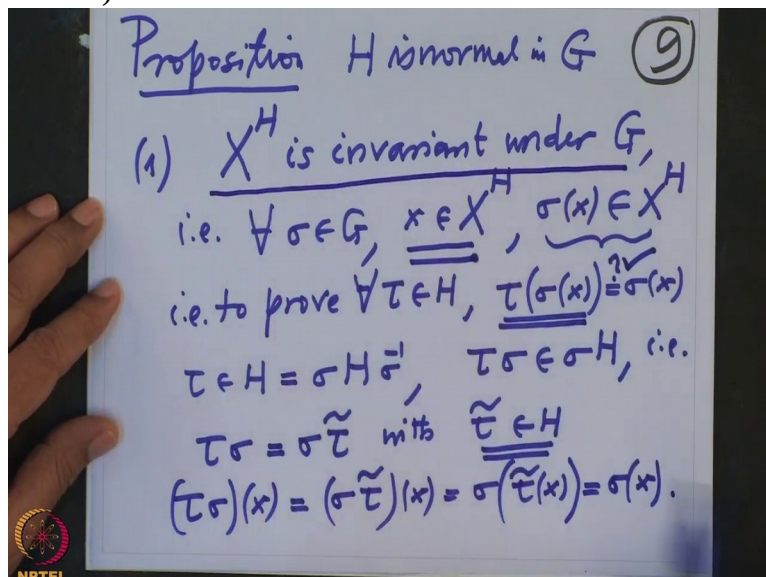 Proposition H is normal in G 9
(1) X^H is invariant under G,
i.e. ∀ σ ∈ G, x ∈ X^H, σ(x) ∈ X^H
i.e. to prove ∀ τ ∈ H, τ(σ(x)) ?✓= σ(x)
τ ∈ H = σ H σ^{-1}, τσ ∈ σH, i.e.
τσ = σ τ̃ with τ̃ ∈ H
(τσ)(x) = (σ τ̃)(x) = σ(τ̃(x)) = σ(x).
NPTEL